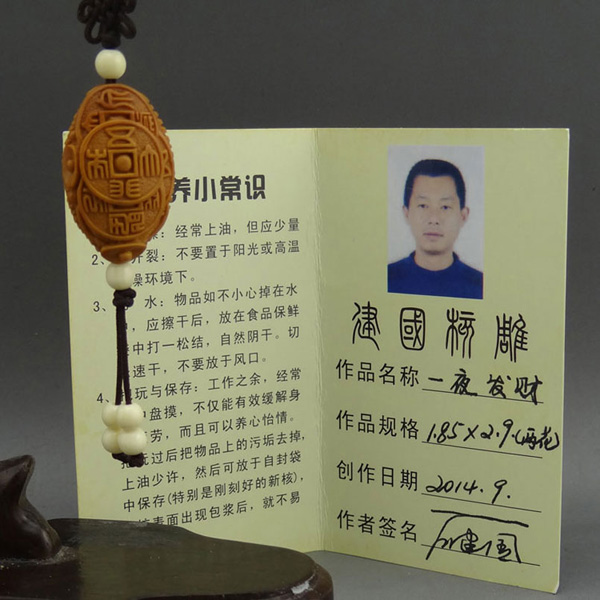 养小常识
：经常上油，但应少量
2、开裂：不要置于阳光或高温
燥环境下。
3、水：物品如不小心掉在水
，应擦干后，放在食品保鲜
中打一松结，自然阴干。切
速干，不要放于风口。
4、玩与保存：工作之余，经常
中盘摸，不仅能有效缓解身
劳，而且可以养心怡情。
玩过后把物品上的污垢去掉，
上油少许，然后可放于自封袋
中保存(特别是刚刻好的新核)，
表面出现包浆后，就不易
建國核雕
作品名称 一夜发财
作品规格 1.85×2.9
创作日期 2014.9.
作者签名